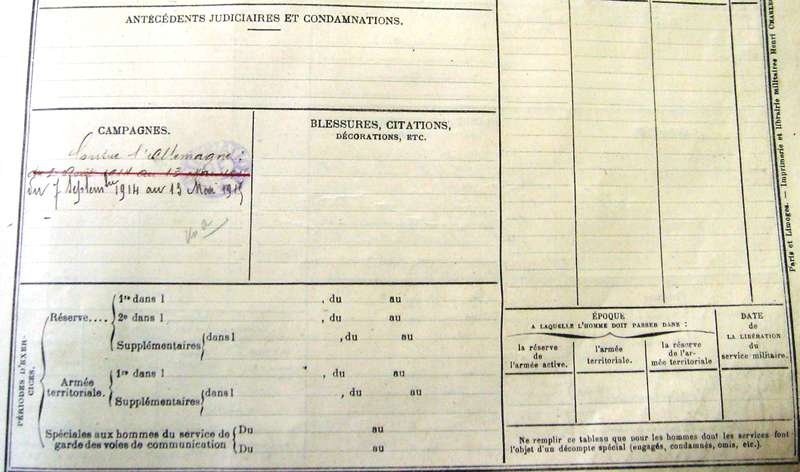 ANTÉCÉDENTS JUDICIAIRES ET CONDAMNATIONS.
CAMPAGNES.
Contre l'Allemagne :
au 13
Du 7 Septembre 1914 au 13 Mai 1915
BLESSURES, CITATIONS,
DÉCORATIONS, ETC.
PÉRIODES D'EXER-
CICES.
Réserve....
1re dans l , du au
2e dans l , du au
Supplémentaires dans l , du au
Armée
territoriale.
1re dans l , du au
Supplémentaires dans l , du au
Spéciales aux hommes du service de
garde des voies de communication
Du au
Du au
ÉPOQUE
A LAQUELLE L'HOMME DOIT PASSER DANS :
la réserve
de
l'armée active.
l'armée
territoriale.
la réserve
de l'ar-
mée territoriale
DATE
de
LA LIBÉRATION
du
service militaire.
Ne remplir ce tableau que pour les hommes dont les services font
l'objet d'un décompte spécial (engagés, condamnés, omis, etc.).
Paris et Limoges. — Imprimerie et librairie militaires Henri CHARLES